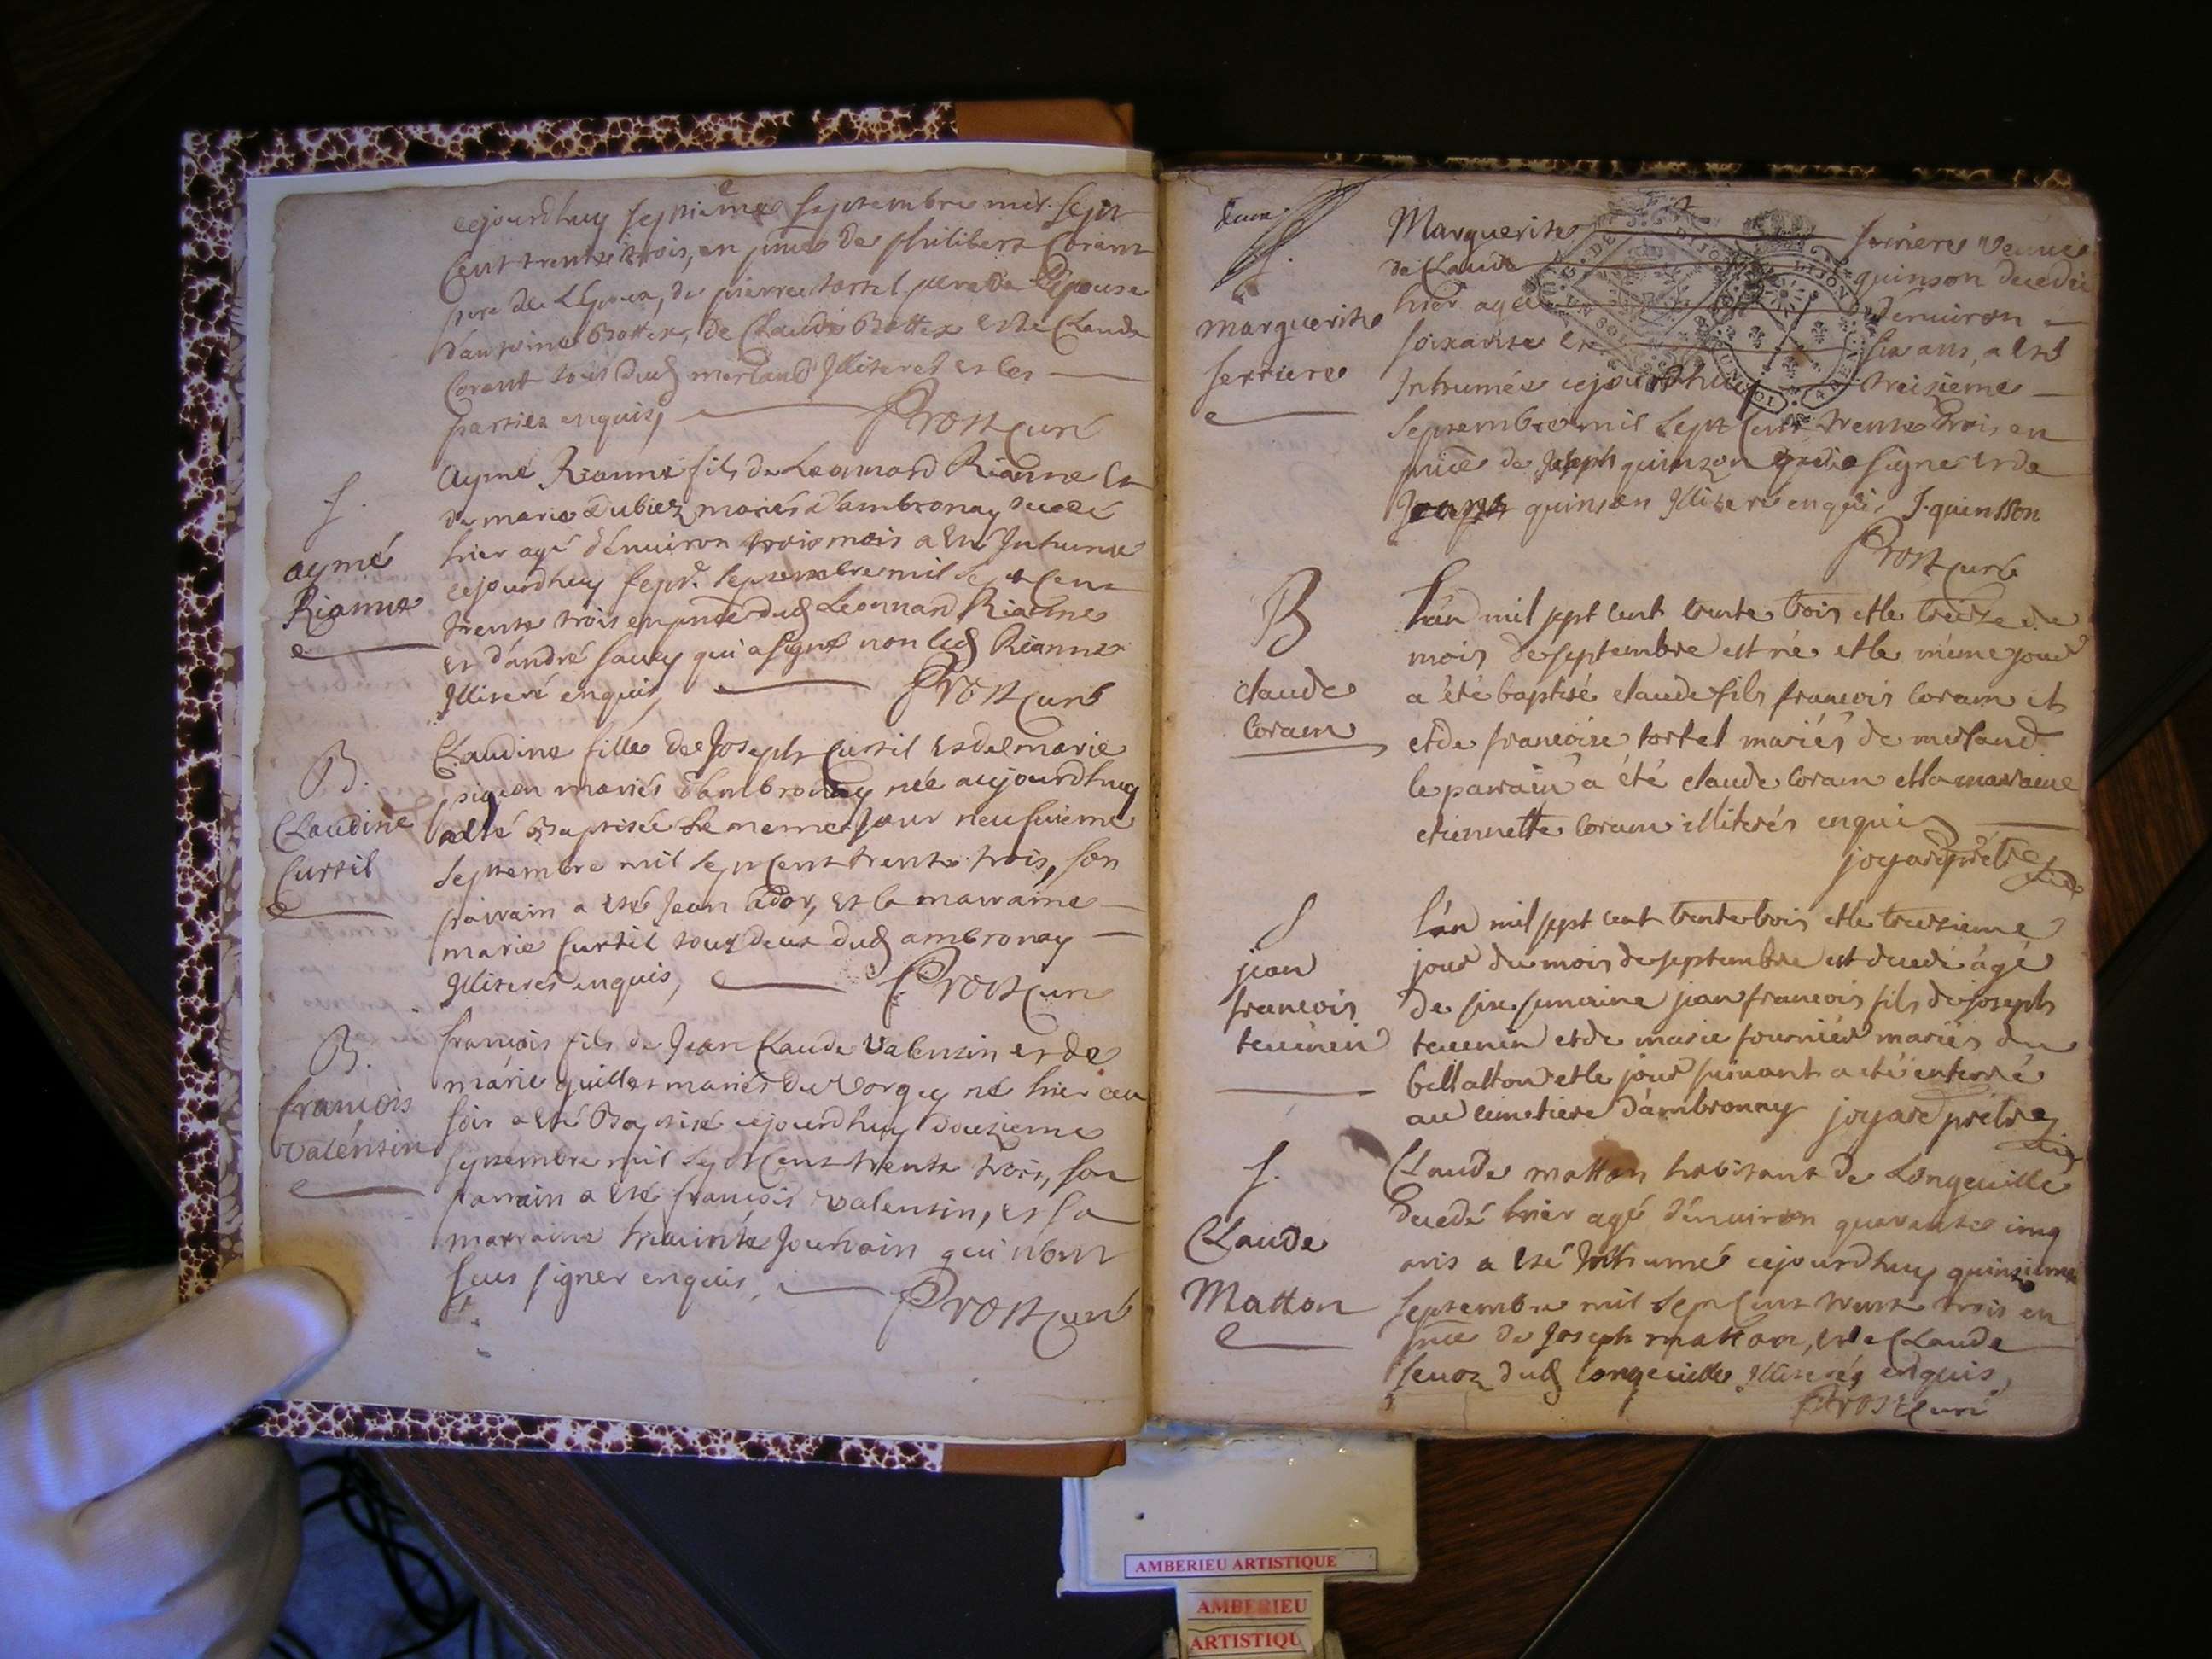 cejourdhuy septiéme septembre mil sept
Cent trente trois, en pnce de philibert Corant
pere de L'Epoux, de pierre tortel pere de L'Epouse
d'antoine Bottex, de Claude Bottex et de Claude
Corant tous dud merland Illiteres et les
parties enquis, Prost Curé
S.
aymé
Rianne
aymé Rianne fils de Leonnard Rianne et
de marie Dubiez mariés d'ambronay decedé
hier agé d'énuiron trois mois a esté Inhumé
cejourdhuy sept.e septembre mil sept Cent
trente trois en pnce dud Leonnard Rianne
et d'andré sauey qui a signé non led Rianne
Illiteré enquis, Prost Curé
B.
Claudine
Curtil
Claudine fille de Joseph Curtil et de marie
pigeon mariés d'ambronay née aujourdhuy
a esté Baptisée le meme jour neufuieme
septembre mil sept Cent trente trois, son
parrain a esté Jean ador, et la marraine
marie Curtil tous deux dud ambronay
Illiterés enquis, Prost Curé
B.
francois
Valentin
francois fils de Jean Claude Valentin et de
marie quillet mariés du Vorgey né hier au
soir a esté Baptisé cejourdhuy douzieme
septembre mil sept Cent trente trois, son
parrain a esté francois Valentin, et sa
marraine Jouhain qui n'ont
sceu signer enquis, Prost Curé
douze
S.
marguerite
ferriere
Marguerite ferriere veuue
de Claude quinson decedée
hier agée d'énuiron
soixante et six ans, a esté
Inhumée cejourdhuy treiziéme
septembre mil sept Cent trente trois en
pnce de Joseph quinson qui a signé et de
quinson Illiteré enquis, J. quinsson
Prost Curé
B
claude
coram
L'an mil sept cent trente trois et le treize du
mois de septembre est né et le méme jour
a été baptisé claude fils francois coram et
et de francoise tortel mariés de merland
le parain a été claude coram et la maraine
etiennette coram illiterés enquis
joyard prétre
S
jean
francois
teuenin
L'an mil sept cent trente trois et le treizieme
jour du mois de septembre est decedé ágé
de six semaine jean francois fils de joseph
teuenin et de marie fournier mariés du
bellatton et le jour suiuant a été enterré
au cimetiere d'ambronay joyard prétre
S.
Claude
Matton
Claude matton habitant de Longeuille
decedé hier agé d'énuiron quarante cinq
ans a esté Inhumé cejourdhuy quinzieme
septembre mil sept Cent trente trois en
pnce de Joseph matton, et de Claude
seuoz dud longeuille Illiterés enquis,
Prost Curé
AMBERIEU ARTISTIQUE
AMBERIEU
ARTISTIQU